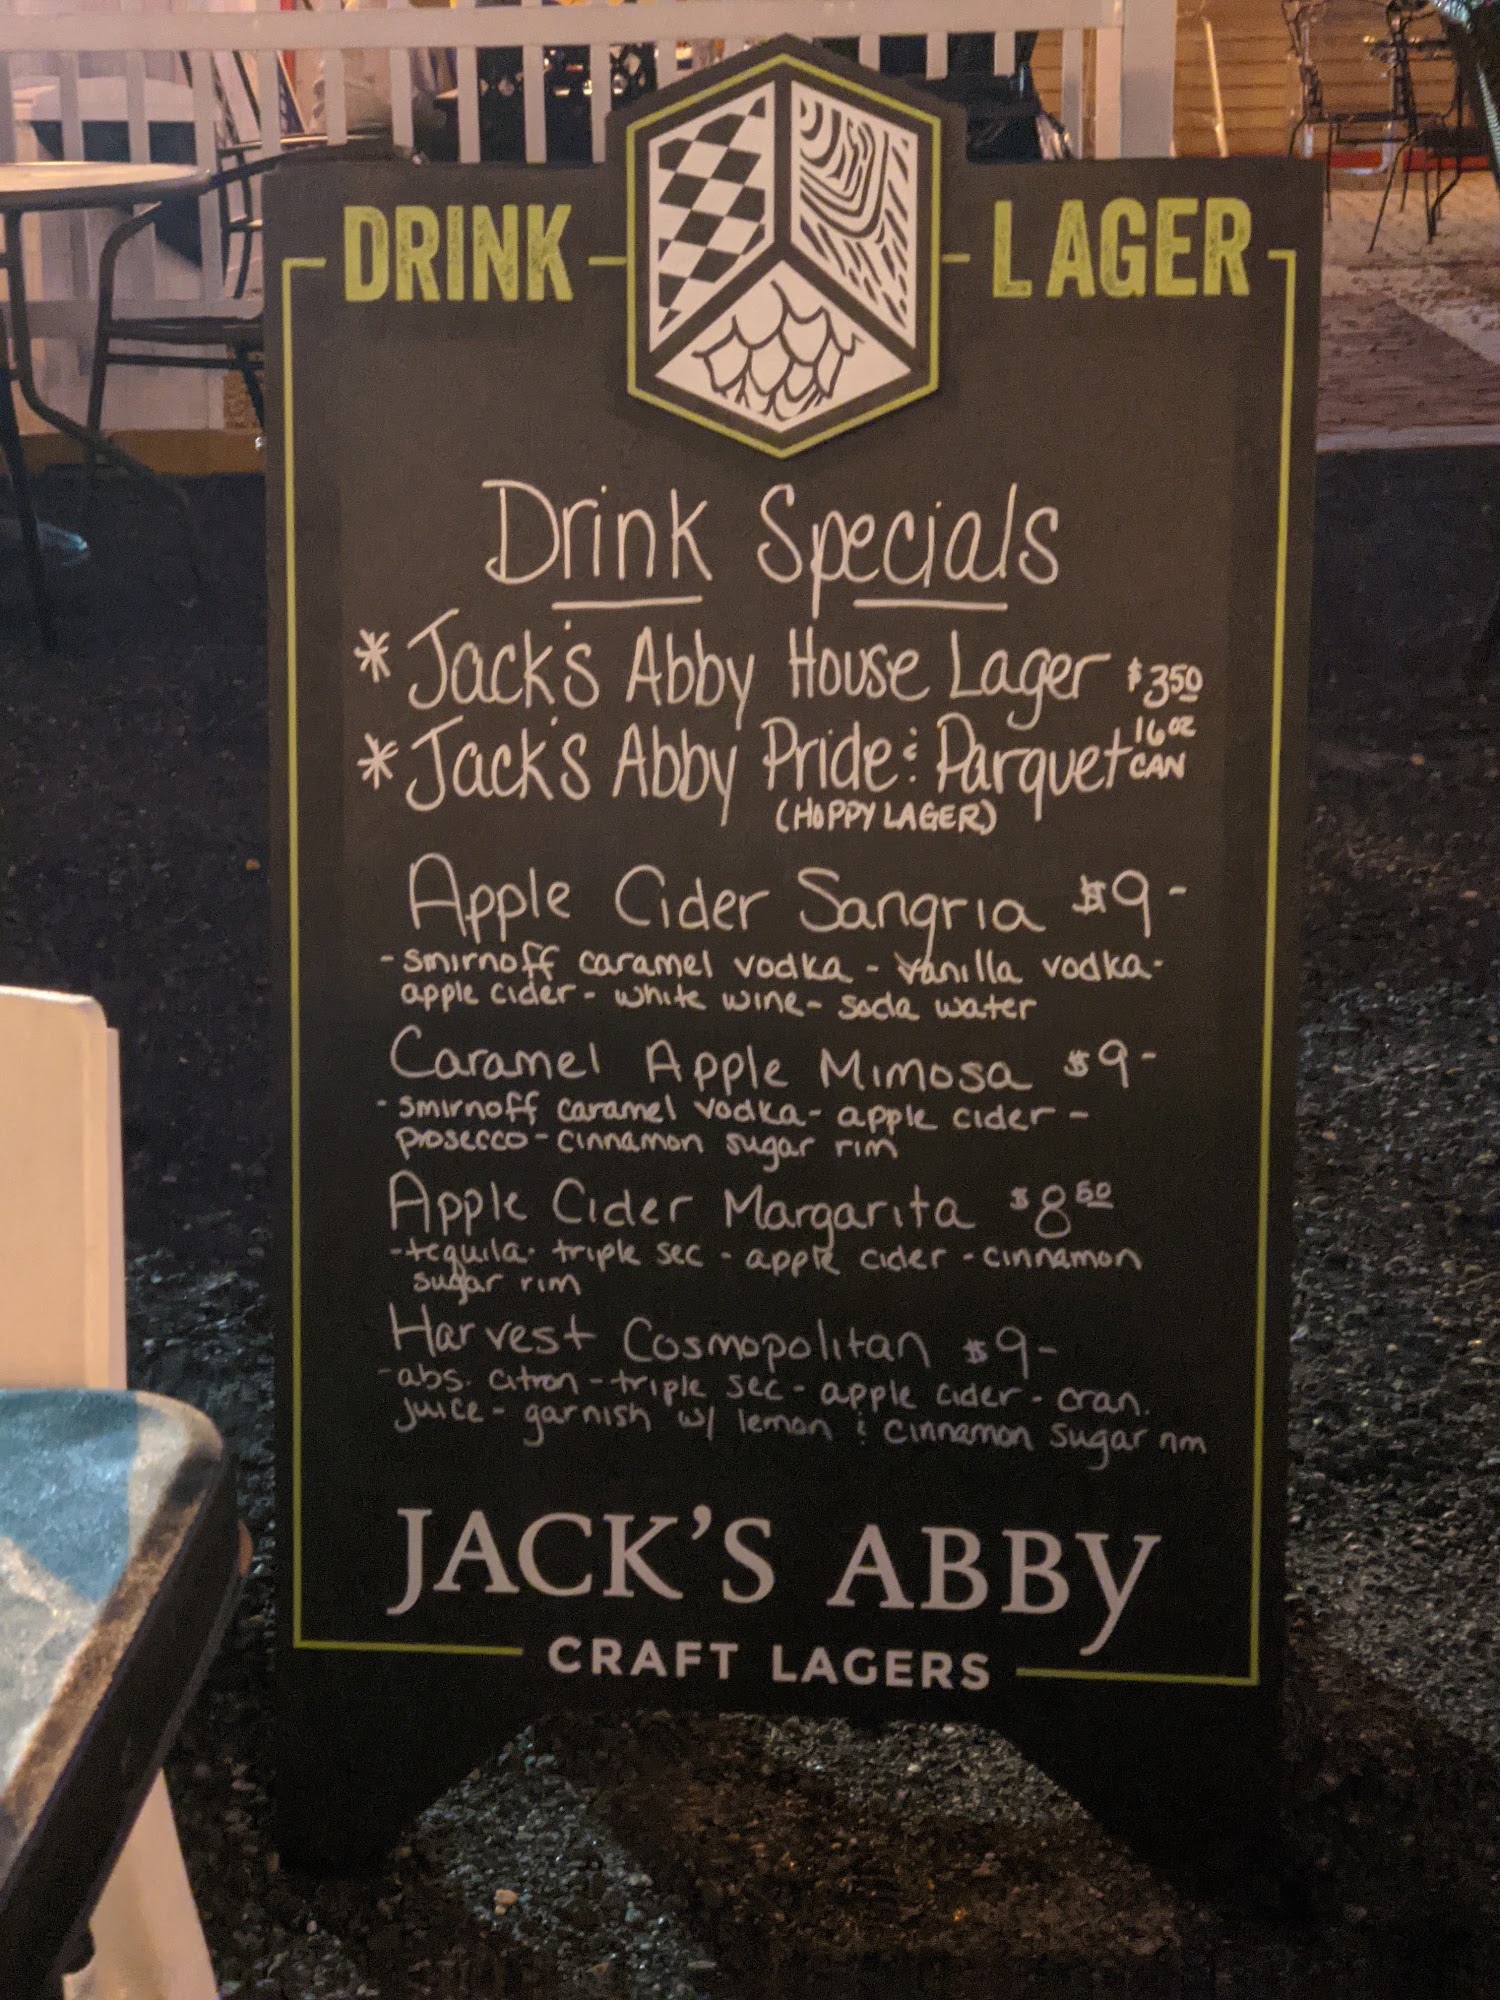 DRINK LAGER
Drink Specials
* Jack's Abby House Lager $3.50
* Jack's Abby Pride & Parquet 16oz CAN
(HOPPY LAGER)
Apple Cider Sangria $9-
- smirnoff caramel vodka - vanilla vodka-
apple cider - white wine - soda water
Caramel Apple Mimosa $9-
- smirnoff caramel vodka - apple cider -
prosecco - cinnamon sugar rim
Apple Cider Margarita $8.50
- tequila - triple sec - apple cider - cinnamon
sugar rim
Harvest Cosmopolitan $9-
- abs. citron - triple sec - apple cider - cran.
juice - garnish w/ lemon & cinnamon sugar rim
JACK'S ABBY
CRAFT LAGERS